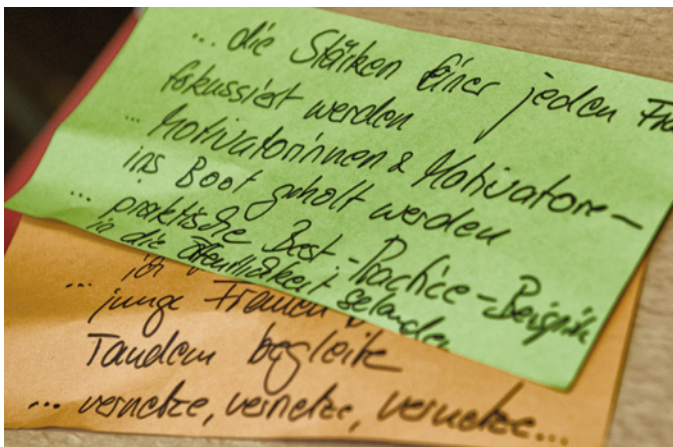 ... die Stärken Einer jeden
fokussiert werden
... Motivatorinnen & Motivatore-
ins Boot geholt werden
... praktische Best-Practice-
in die Öffentlichkeit
... ich
junge Frauen
Tandem begleite
... vernetze, vernetze, vernetze...